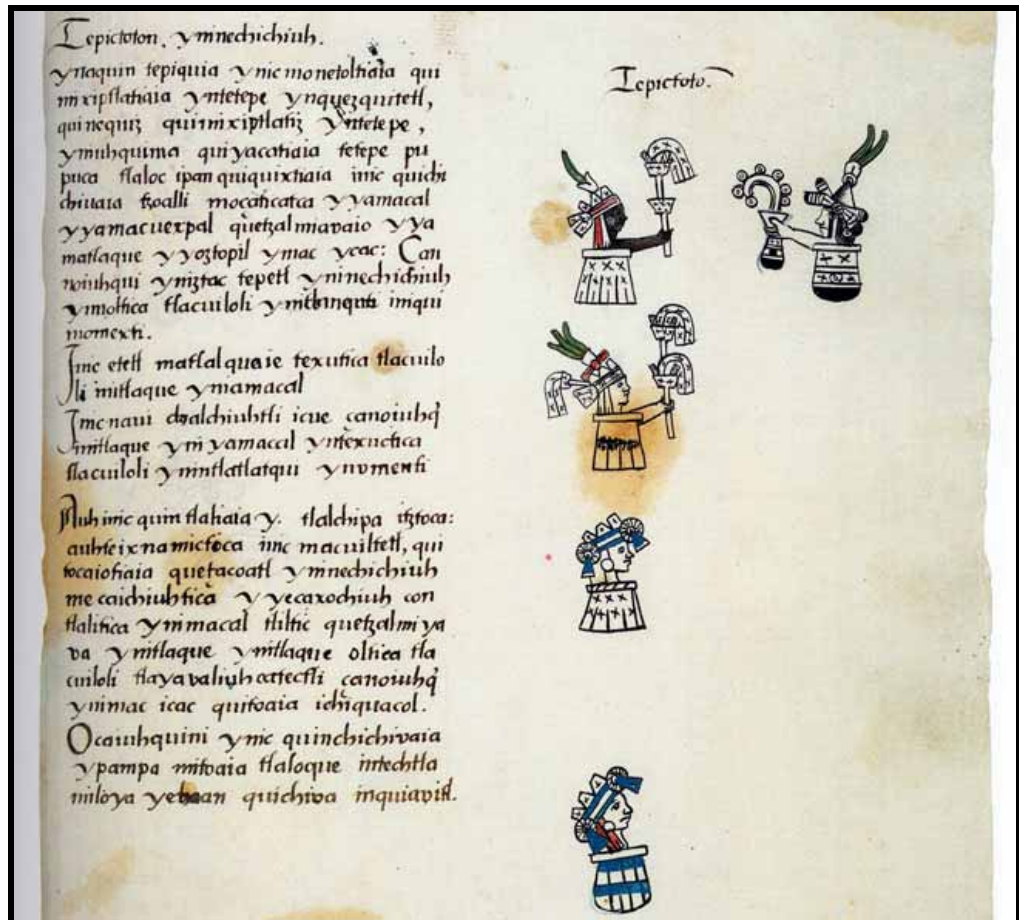 Tepictoton. ynnechichiuh.
ynaquin tepiquia ynic monetoltiaia qui
mixiptlatiaia yntetepe ynquezquitetl,
quinequiz quimixiptlatiz yntetepe,
ymuhquima quiyacatiaia tetepe pu
puca tlaloc ipan quiquixtiaia inic quichi
chivaia tzoalli mocaticatca yyamacal
yyamacuexpal quetzalmiavaio yya
matlaque yyoztopil ymac ycac: Çan
noiuhqui yniztac tepetl yninechichiuh
ymoltica tlacuiloli ynitlaque imqui
momexti.
Jnic etetl matlalquaie texutica tlacuilo
li initlaque ynamacal
Jnic naui chalchiuhtli icue canoiuhq̄
initlaque yniyamacal yntexuctica
tlacuiloli ynintlatlatqui ynomenti
Auh inic quintlaliaia y. tlalchipa itztoca:
auh teixnamictoca inic macuiltetl, qui
tocaiotiaia quetacoatl yninechichiuh
mecaichiuhtica yyecaxochiuh con
tlalitica ynimacal tliltic quetzalmiya
va ynitlaque ynitlaque oltica tla
cuiloli tlayavaliuhcattectli canoiuhq̄
ynimac icac quitoaia ichiquacol.
Ocaiuhquini ynic quinchichivaia
ypampa mitoaia tlaloque intechtla
miloya yehoan quichiva inquiavitl.
Tepictoto.